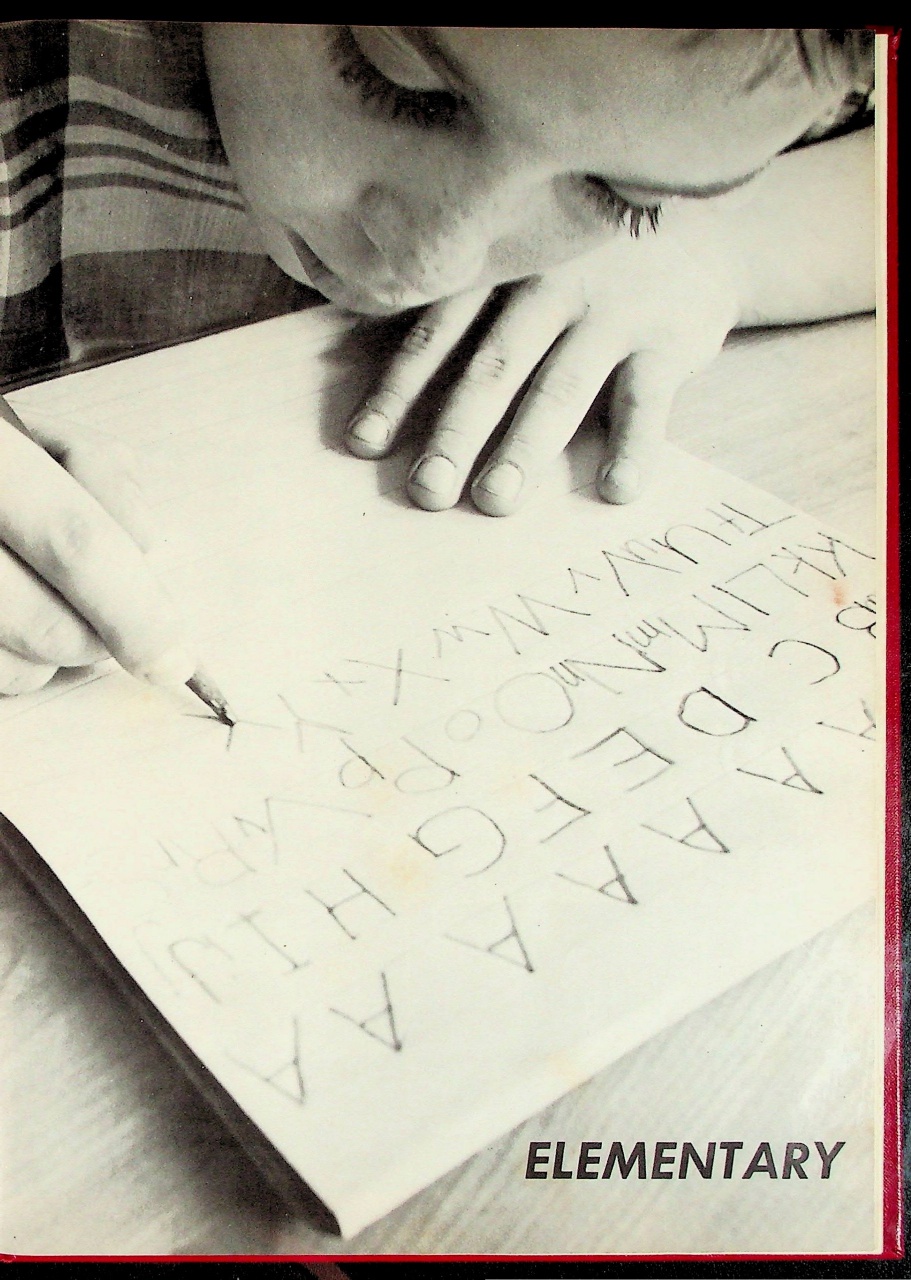 A A A A A A A
B C D E F G H I J
K k L l M m N n O o P p
T U u V v W w X x Y y
ELEMENTARY